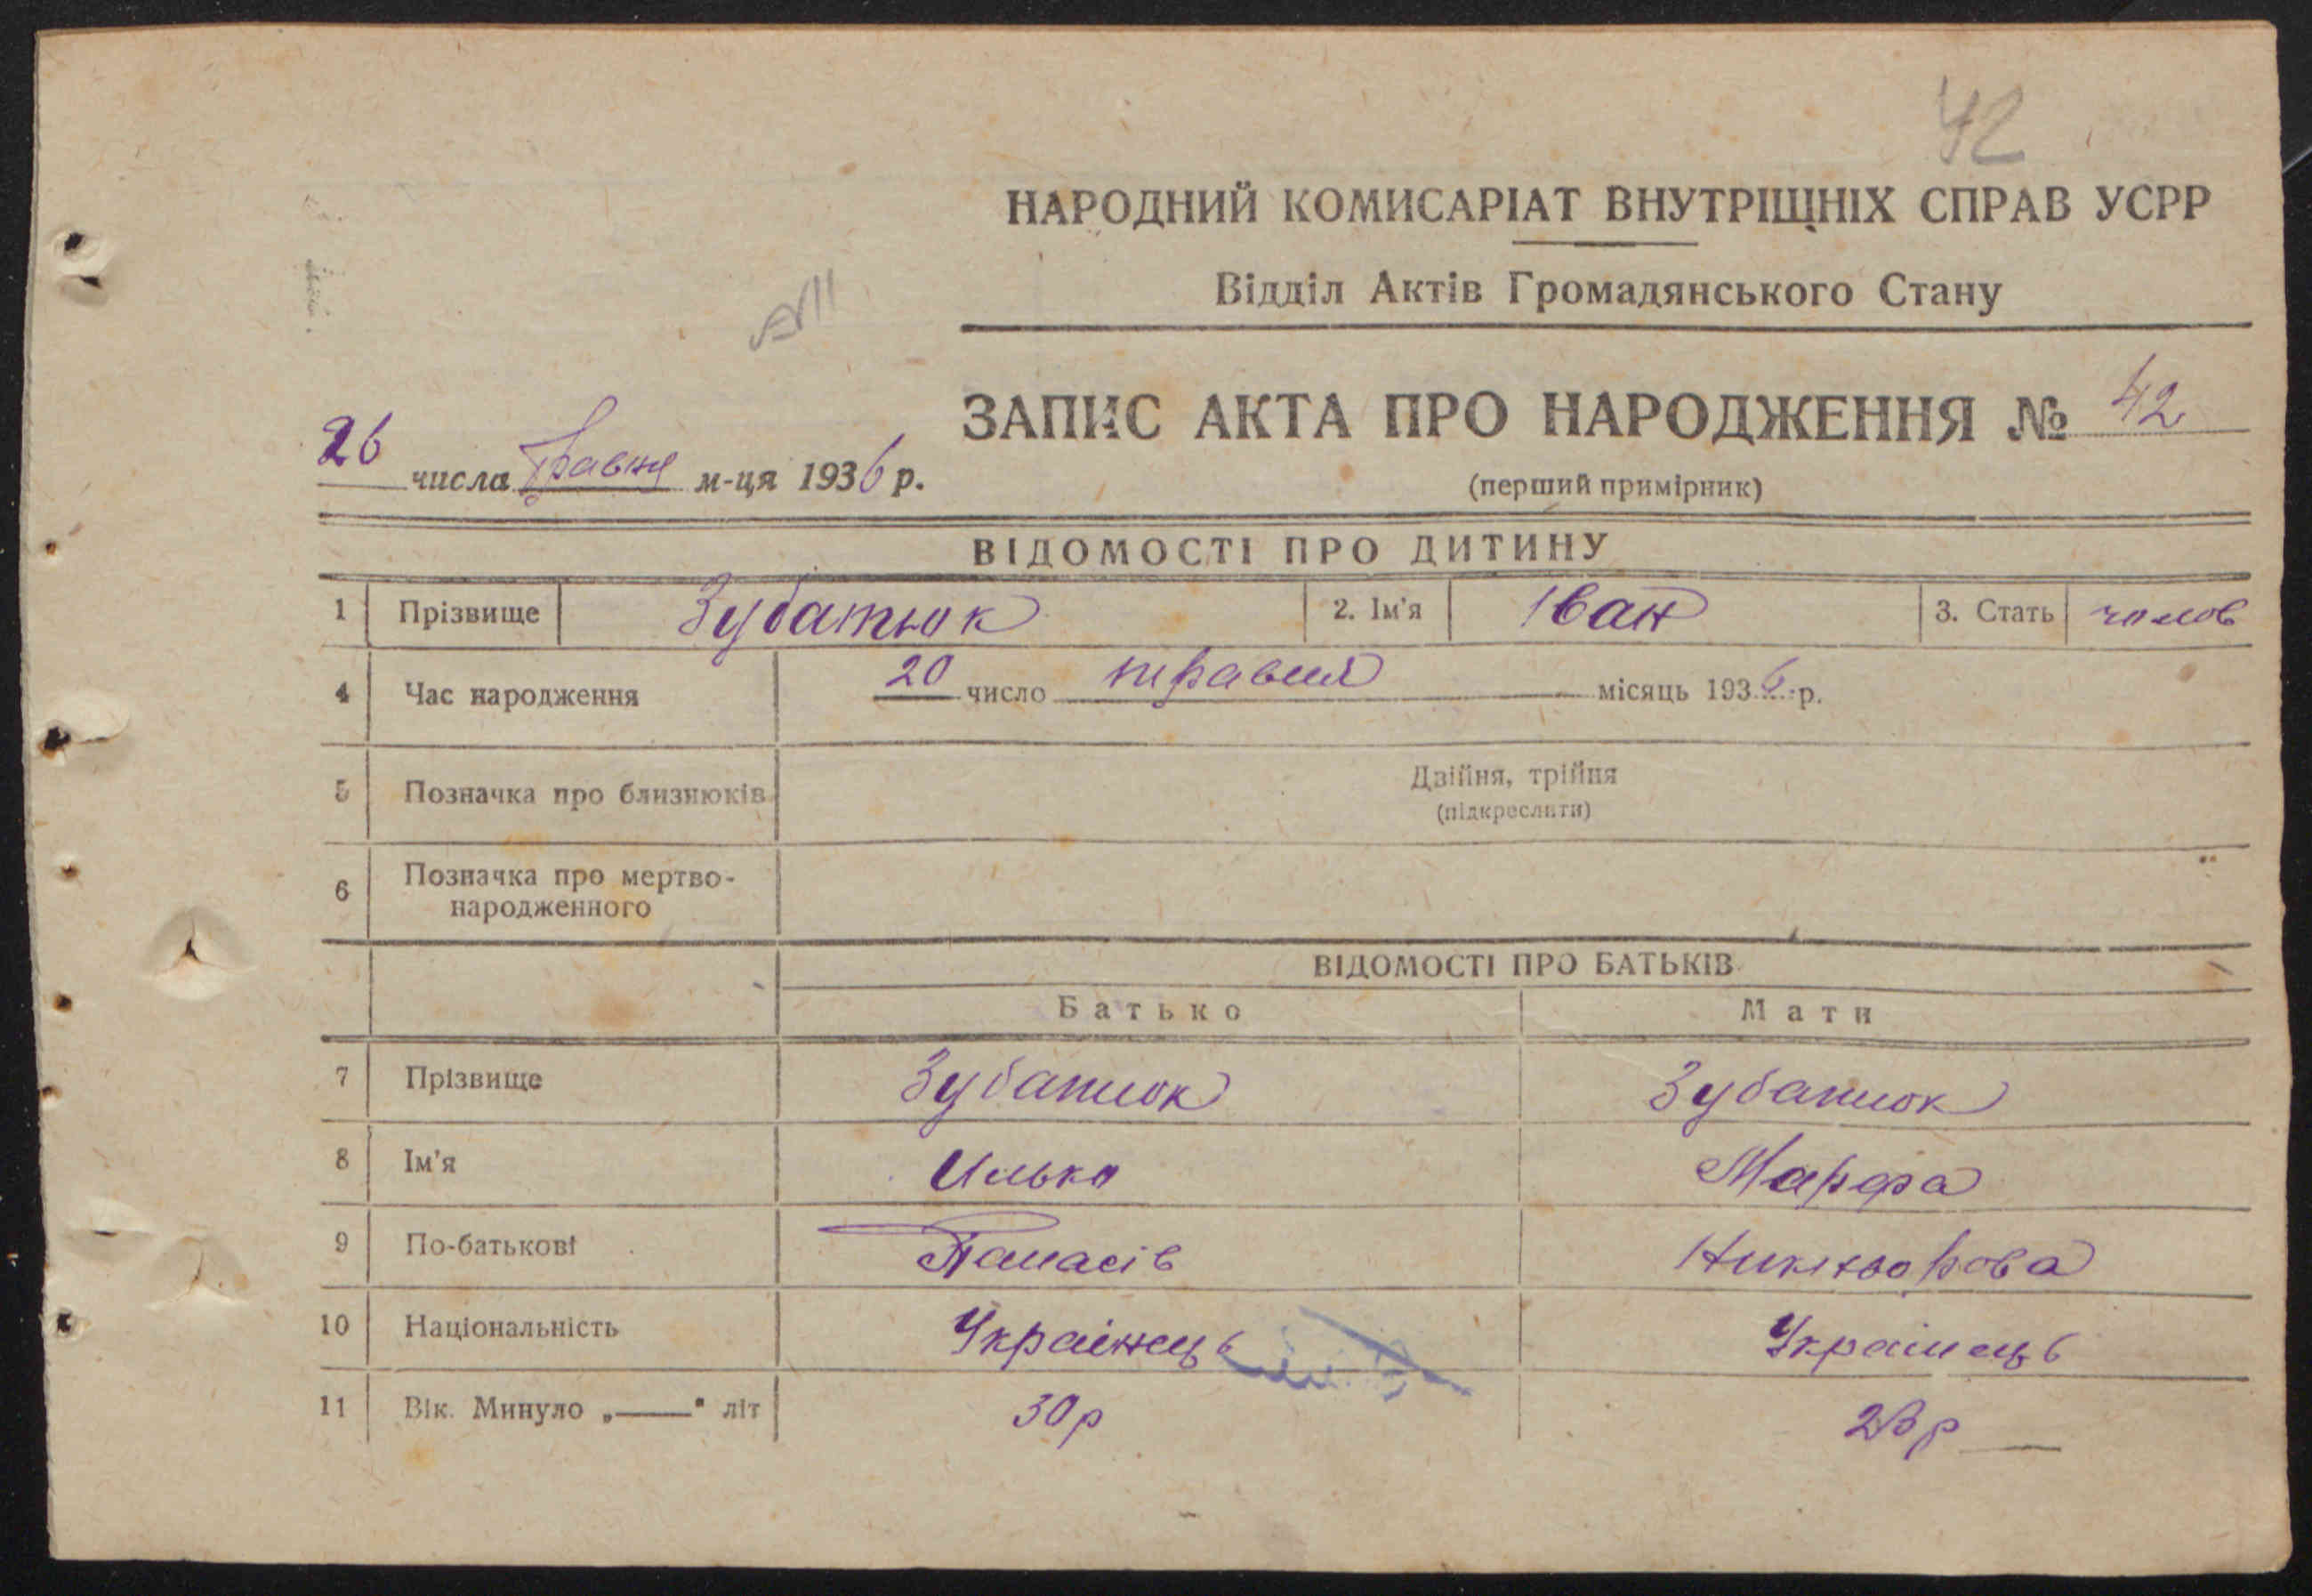 42
НАРОДНИЙ КОМИСАРІАТ ВНУТРІШНІХ СПРАВ УСРР
Відділ Актів Громадянського Стану
ЗАПИС АКТА ПРО НАРОДЖЕННЯ № 42
26 числа Травня м-ця 1936 р.
(перший примірник)
ВІДОМОСТІ ПРО ДИТИНУ
1 Прізвище Зубатюк 2. Ім'я Іван 3. Стать чолов
4 Час народження 20 число травня місяць 1936 р.
5 Позначка про близнюків Двійня, трійня
(підкреслити)
6 Позначка про мертво-
народженного
ВІДОМОСТІ ПРО БАТЬКІВ
Батько Мати
7 Прізвище Зубатюк Зубатюк
8 Ім'я Илько Марфа
9 По-батькові Панасів Никифорова
10 Національність Українець Українець
11 Вік. Минуло „—" літ 30 р р